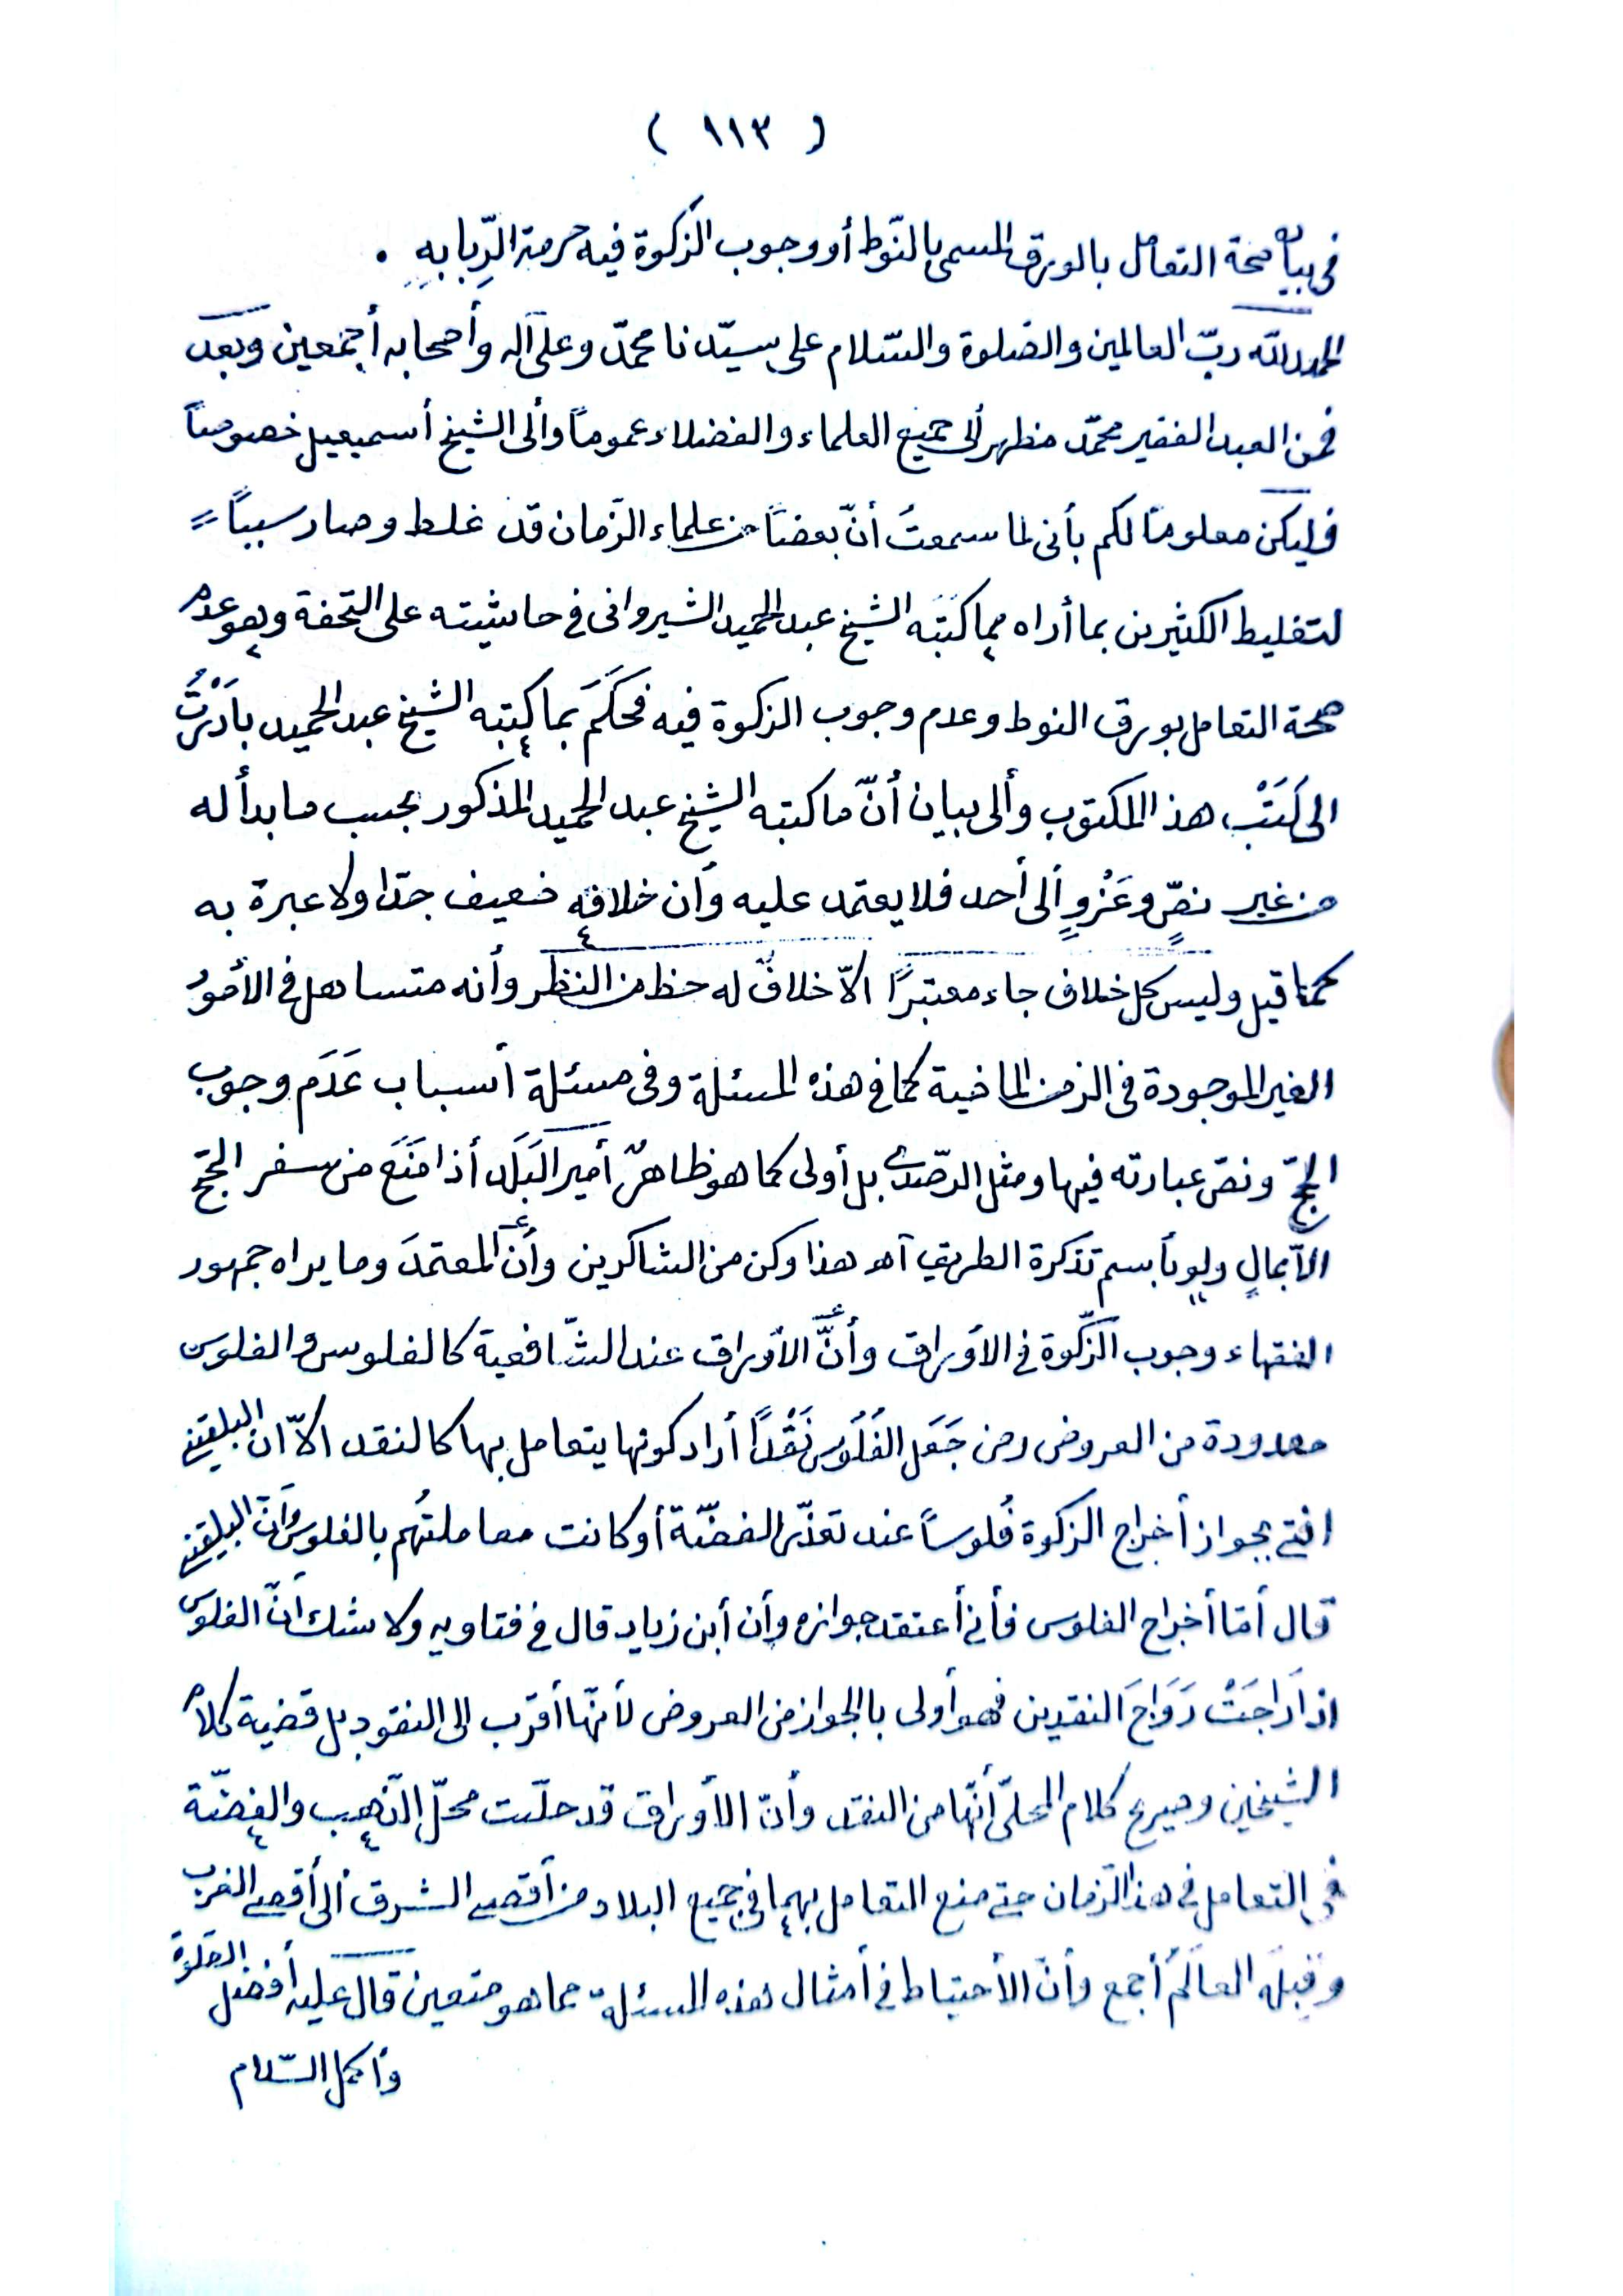 ( ١١٣ )
فى بيان صحة التعامل بالورق المسمى بالنّوط أو وجوب الزكوة فيه حرمة الرّبا به .
الحمد لله ربّ العالمين والصّلوة والسّلام على سيّدنا محمّد وعلى آله وأصحابه أجمعين وبعد
فمن العبد الفقير محمّد مظهر ألى جميع العلماء والفضلاء عموماً وألى الشيخ أسميعيل خصوصاً
فليكن معلوماً لكم بأنى لما سمعتُ أنّ بعضاً من علماء الزّمان قد غلط وصار سبباً =
لتغليط الكثيرين بما أراه مما كتَبَه الشيخ عبد الحميد الشيروانى فى حاشيته على التحفة وهو عدم
صحة التعامل بورق النوط وعدم وجوب الزكوة فيه فحَكَمَ بما كتبه الشيخ عبد الحميد بادَرْتُ
الى كَتَبْ هذ المكتوب وألى بيان أنّ ما كتبه الشيخ عبد الحميد المذكور بحسب ما بدأ له
من غير نصٍّ وعَزْوٍ ألى أحد فلا يعتمد عليه وأن خلافه ضعيف جدّا ولا عبرة به
كما قيل وليس كل خلاف جاء معتبرًا الاّ خلافٌ له حظ من النظر وأنه متساهل فى الأمور
الغير الموجودة فى الزمن الماضية كما فى هذه المسئلة وفى مسئلة أسباب عَدَم وجوب
الحجّ ونصّ عبارته فيها ومثل الرّصدىّ بل أولى كما هو ظاهرٌ أمير البَلَد أذا مَنَعَ من سفر الحجّ
الاّ بمالٍ ولو بأسم تذكرة الطريق آه هذا وكن من الشاكرين وأنّ المعتمدَ وما يراه جمهور
الفقهاء وجوب الزّكوة فى الأوراق وأنَّ الأوراق عند الشّافعية كالفلوس والفلوس
معدودة من العروض ومن جَعَل الفُلُوس نَقْداً أراد كونها يتعامل بها كالنقد الاّ أن البلقينى
افتى بجواز أخراج الزكوة فُلوساً عند تعذّر الفضّة أو كانت معاملتُهم بالفلوس وأنّ البلقينى
قال أمّا أخراج الفلوس فأنى أعتقد جوازه وأن أبن زياد قال فى فتاويه ولا شك أنّ الفلوس
اذا راجَتْ رَوَاجَ النقدين فهو أولى بالجواز من العروض لأنّها أقرب الى النقود بل قضية كلام
الشيخين وصريح كلام المحلّى أنّها من النقد وأنّ الأوراق قد حلّت محلّ الذّهب والفضّة
فى التعامل فى هذا الزّمان حتى منع التعامل بهما فى جميع البلاد من أقصى الشرق ألى أقصى الغرب
وقبله العالَمُ أجمع وأنّ الأحتياط فى أمثال هذه المسئلة مما هو متعين قال عليه أفضل الصّلوة
وأكمل السّلام